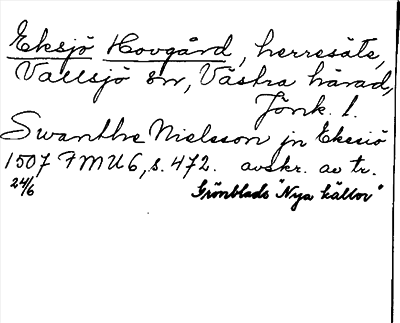 Eksjö Hovgård, herresäte,
Vallsjö sn, Västra härad,
Jönk. l.
Swanthe Nielsson jn Eksiö
1507 FMU6, s. 472. avskr. av tr.
24/6 Grönblads "Nya källor"